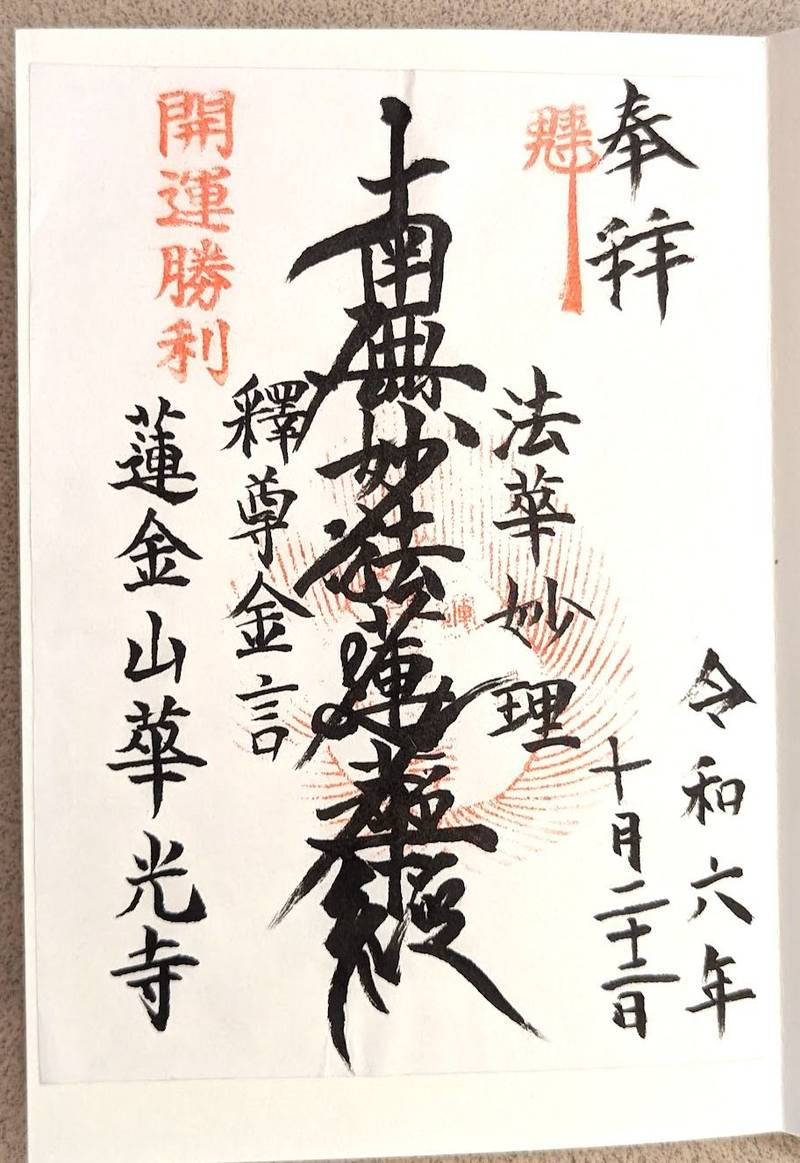 奉拝
令和六年
十月二十二日
法華妙理
南無妙法蓮華經
釋尊金言
開運勝利
蓮金山華光寺